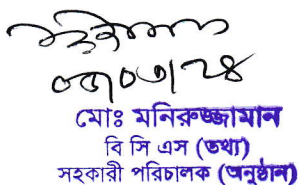 ০৫/০৩/২৪
মোঃ মনিরুজ্জামান
বি সি এস (তথ্য)
সহকারী পরিচালক (অনুষ্ঠান)